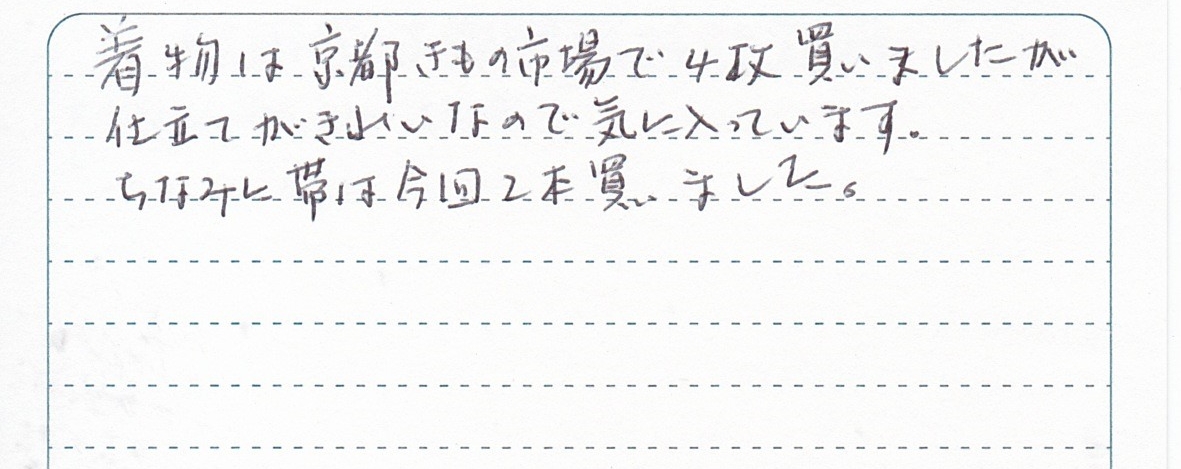 着物は京都きもの市場で4枚買いましたが
仕立てがきれいなので気に入っています。
ちなみに帯は今回2本買いました。